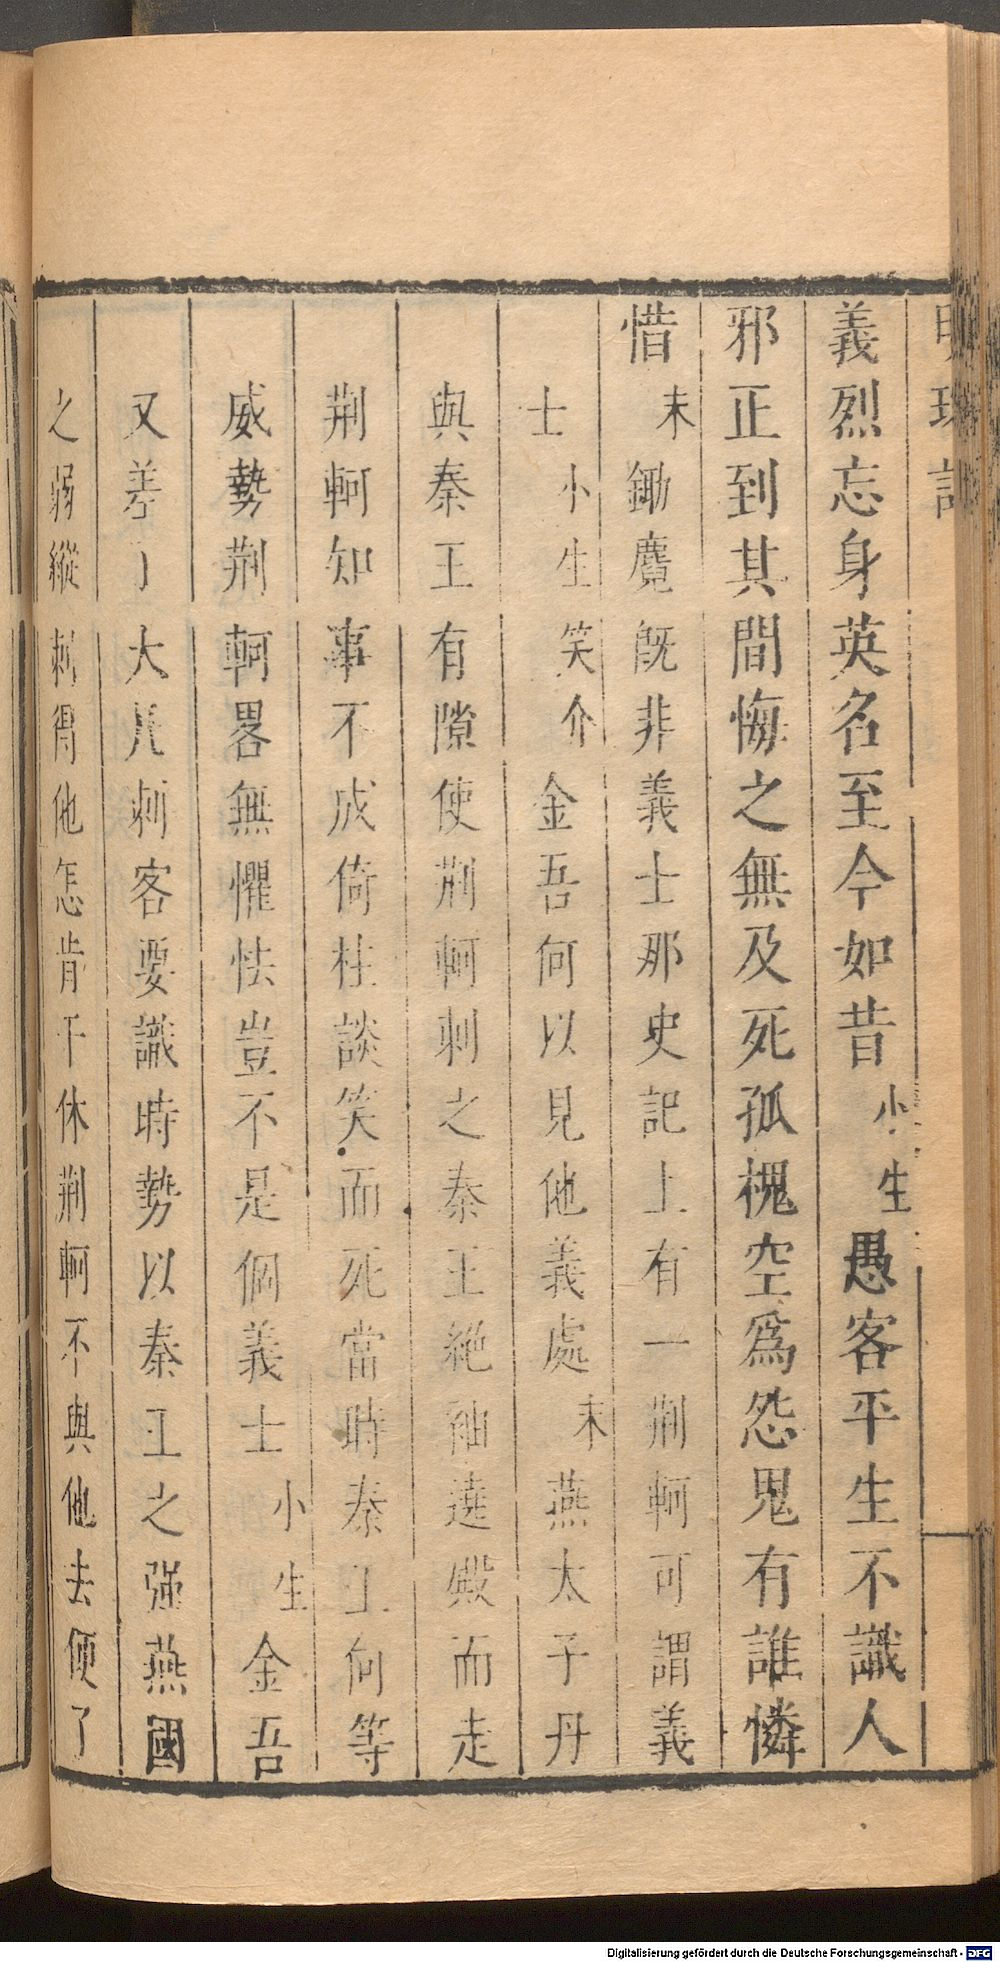 明珠記
義烈忘身英名至今如昔小生愚客平生不識人
邪正到其間悔之無及死孤槐空為怨鬼有誰憐
惜末鋤麑既非義士那史記上有一荆軻可謂義
士小生笑介金吾何以見他義處末燕太子丹
與秦王有隙使荆軻刺之秦王絶袖遶殿而走
荆軻知事不成倚柱談笑而死當時秦王何等
威勢荆軻畧無懼怯豈不是個義士小生金吾
又差了大凡刺客要識時勢以秦王之强燕國
之弱縱刺得他怎肯干休荆軻不與他去便了
Digitalisierung gefördert durch die Deutsche Forschungsgemeinschaft - DFG